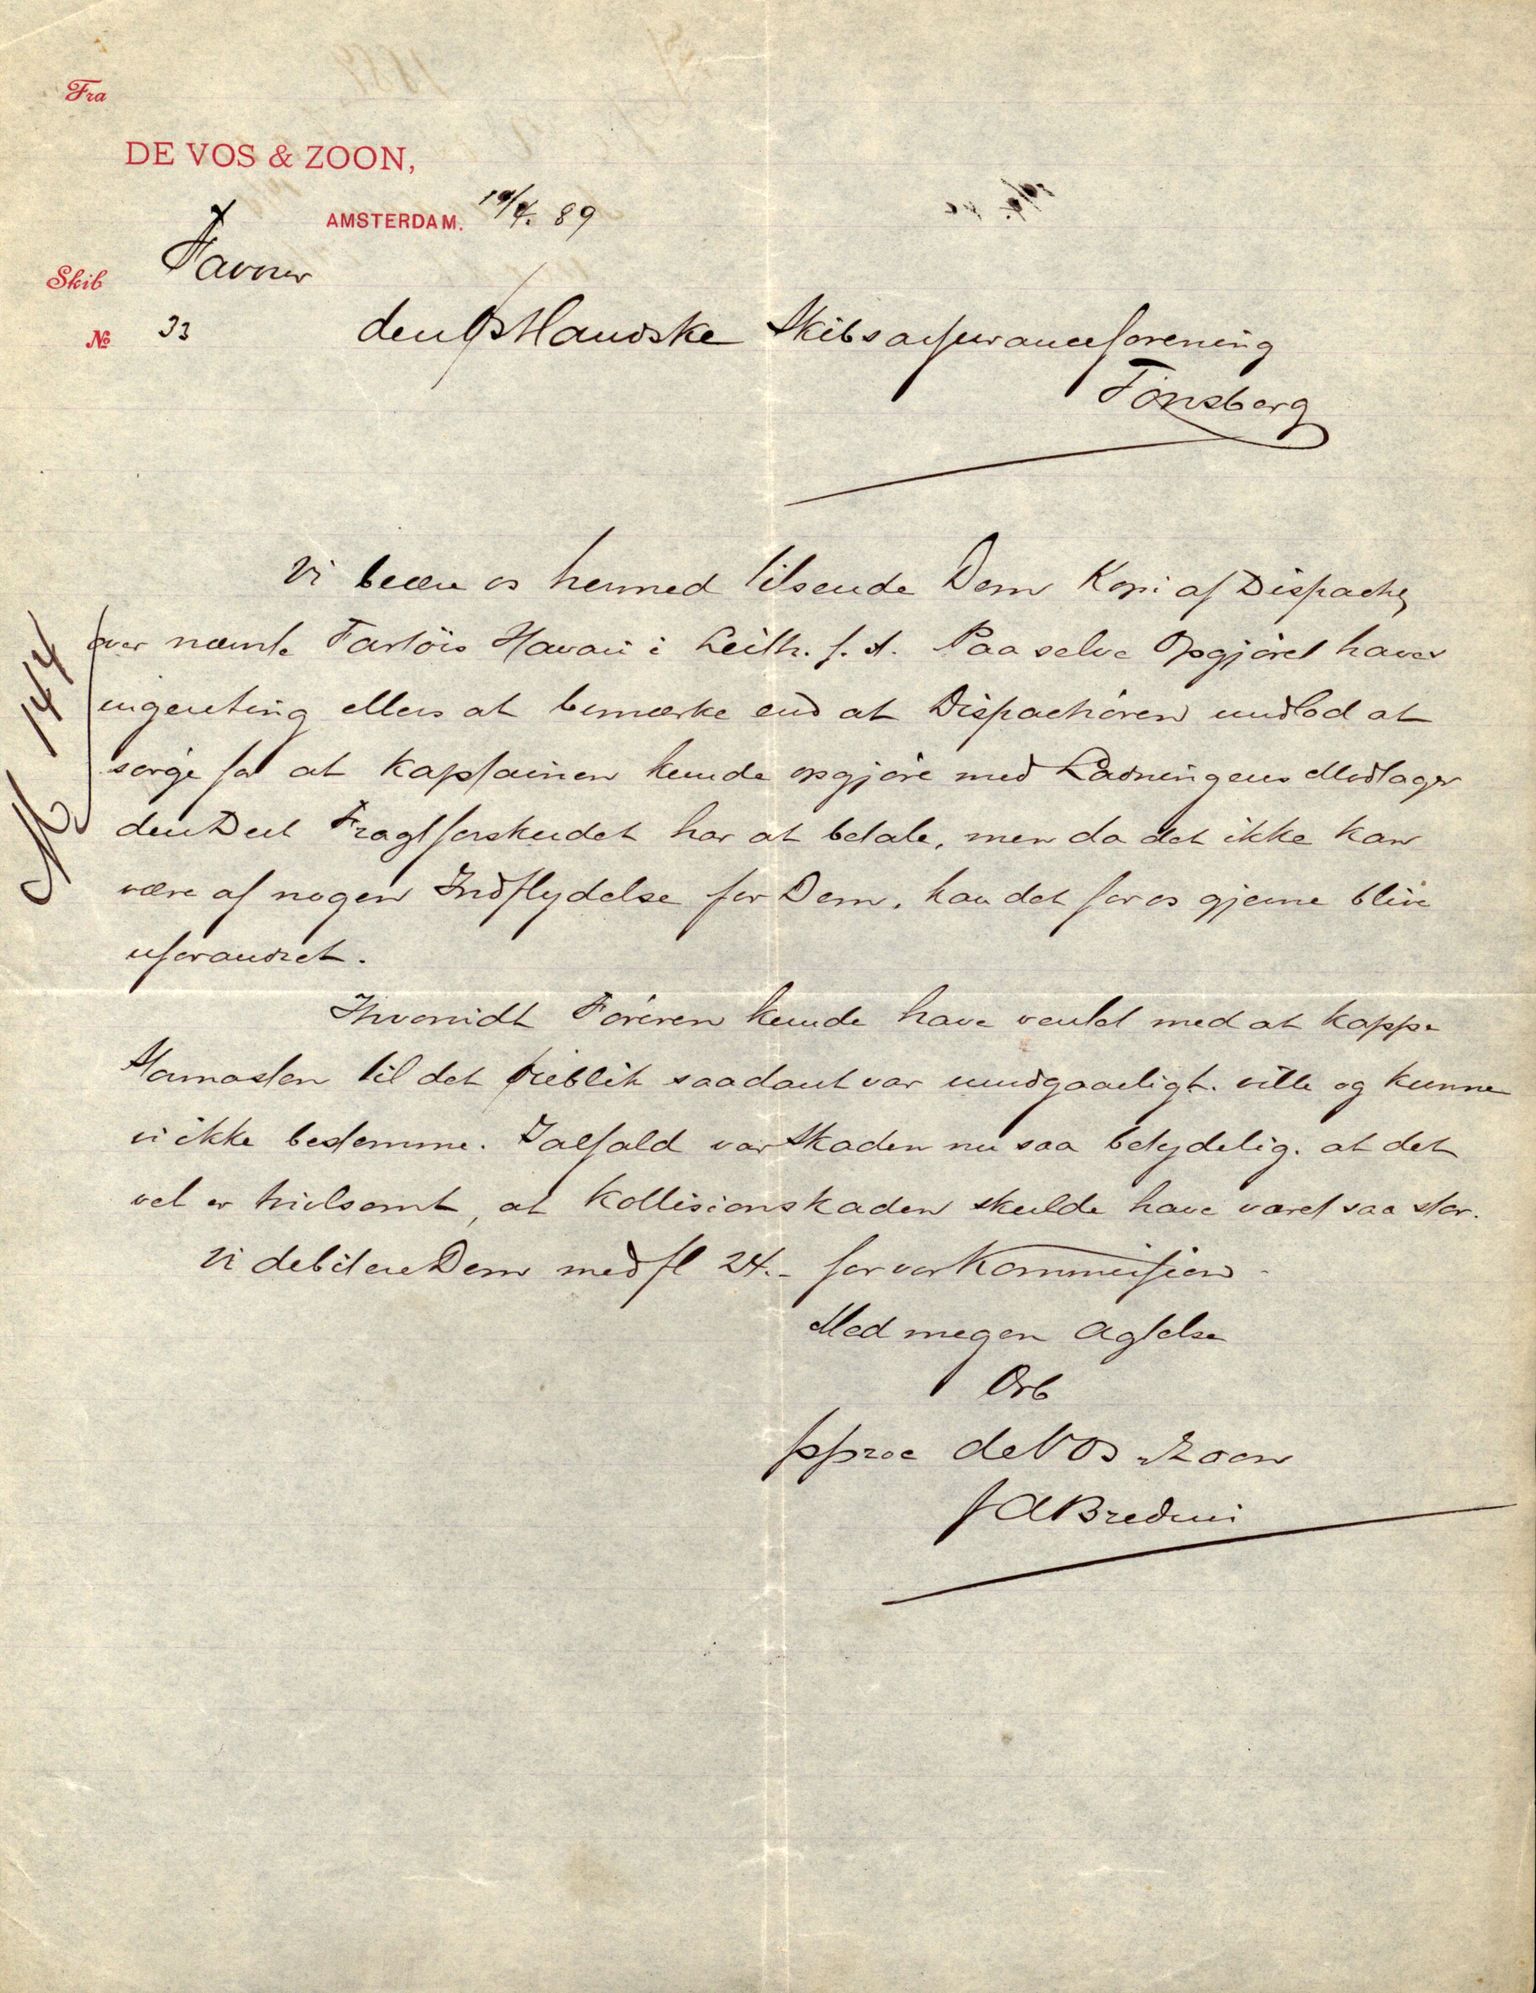 Fra
DE VOS & ZOON,
AMSTERDAM. 19/4. 89
Skib Favour
№ 33
den Østlandske Skibsassuranceforening
Tønsberg
Vi beære os hermed tilsende Dem Kopi af Dispache
over nævnte Fartöis Havari i Leith. f. A. Paa selve Opgjöret haver
ingenting ellers at bemærke end at Dispachören undlod at
sörge for at Kaptainen kunde opgjöre med Ladningens Modtager
den Deel Fragtforskudet har at betale, men da det ikke kan
være af nogen Indflydelse for Dem, kan det for os gjerne blive
uforandret.
Hvorvidt Föreren kunde have ventet med at kappe
Stormasten til det Öieblik saadant var uundgaaeligt. ville og kunne
vi ikke bestemme. Ialfald var Skaden nu saa betydelig. at det
vel er tvivlsomt, at Kollisionskaden skulde have været saa stor.
Vi debitere Dem med fl 24.- for vor Kommission -
Med megen Agtelse
Orb
ppraa de Vos & Zoon
J A Bredius
№ 144